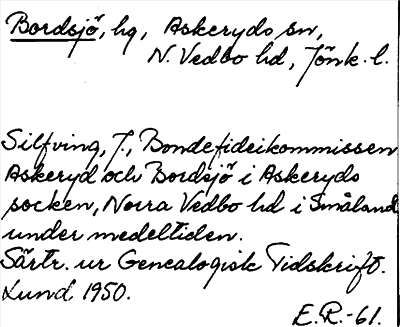 Bordsjö, hg, Askeryds sn,
N. Vedbo hd, Jönk. l.
Silfving, J., Bondefideikommissen
Askeryd och Bordsjö i Askeryds
socken, Norra Vedbo hd i Småland
under medeltiden.
Särtr. ur Genealogisk Tidskrift.
Lund 1950.
E.R.-61.